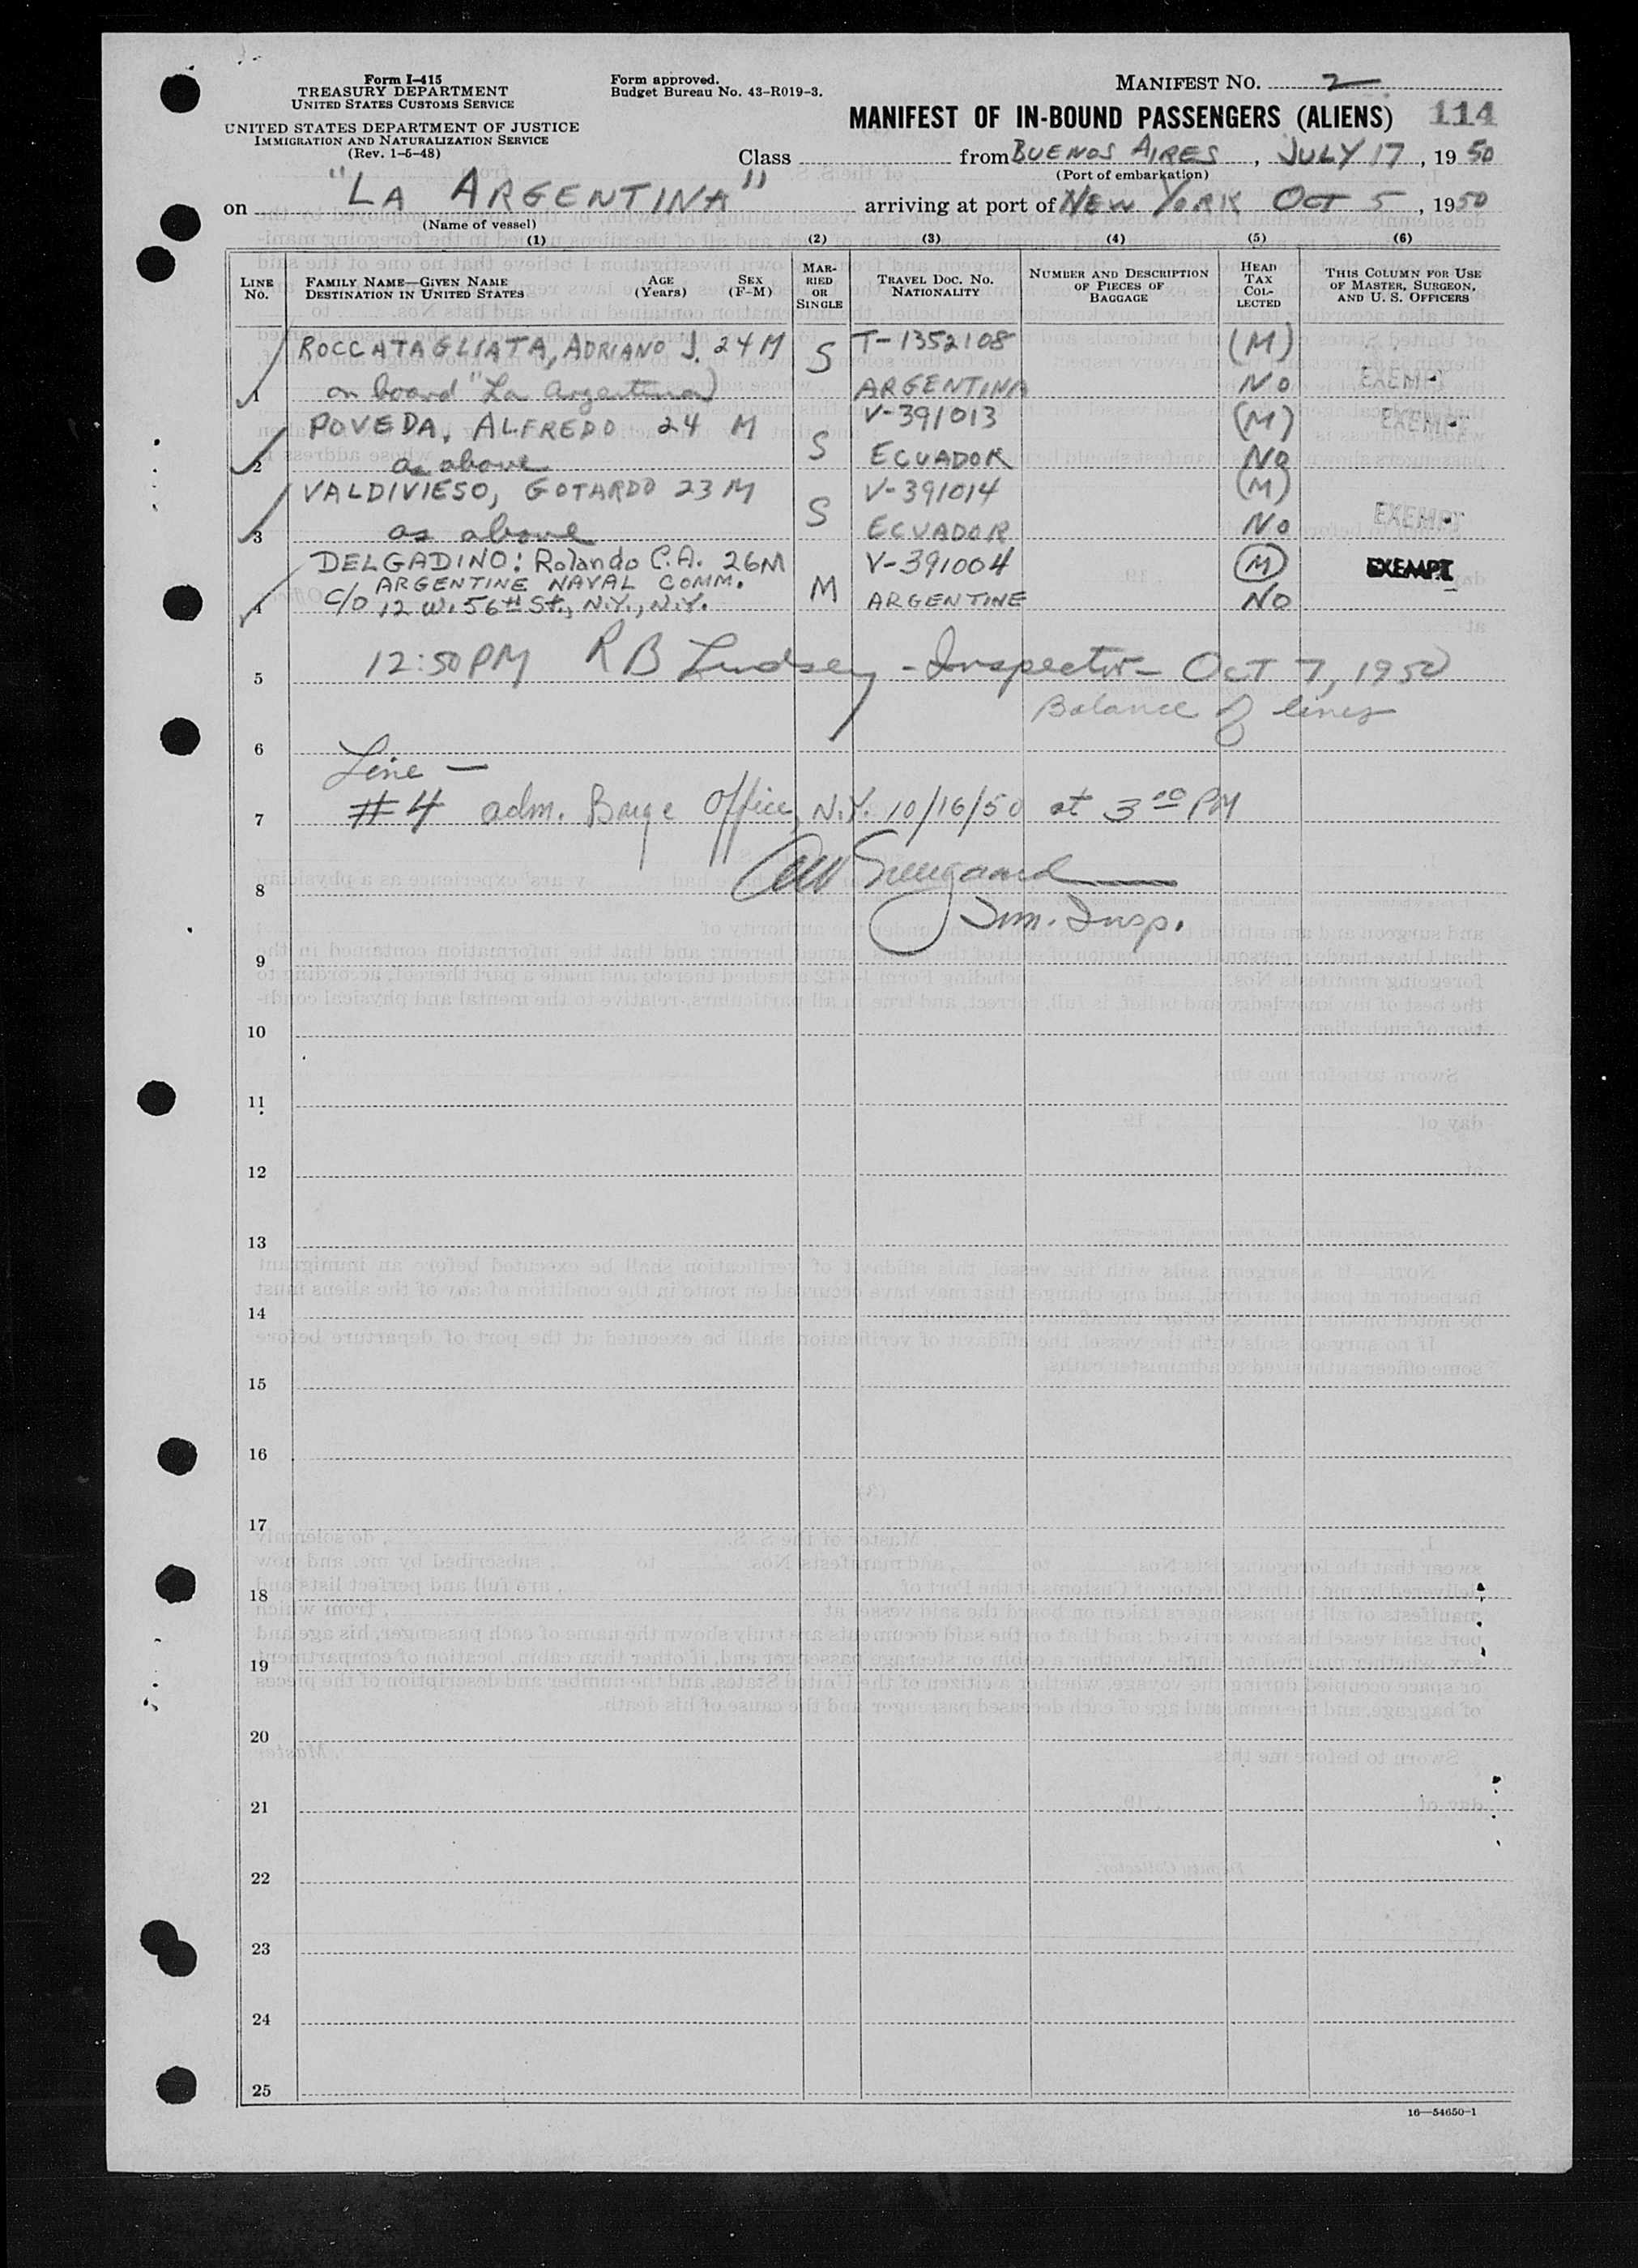 Form I-415
TREASURY DEPARTMENT
UNITED STATES CUSTOMS SERVICE
UNITED STATES DEPARTMENT OF JUSTICE
IMMIGRATION AND NATURALIZATION SERVICE
(Rev. 1-5-48)
Form approved.
Budget Bureau No. 43-R019-3.
MANIFEST NO. 2
MANIFEST OF IN-BOUND PASSENGERS (ALIENS) 114
Class from BUENOS AIRES, JULY 17, 1950
(Port of embarkation)
on "LA ARGENTINA" arriving at port of NEW YORK OCT 5, 1950
(Name of vessel)
(1) (2) (3) (4) (5) (6)
LINE NO.
FAMILY NAME—GIVEN NAME
DESTINATION IN UNITED STATES
AGE (Years)
SEX (F-M)
MARRIED OR SINGLE
TRAVEL DOC. NO. NATIONALITY
NUMBER AND DESCRIPTION OF PIECES OF BAGGAGE
HEAD TAX COLLECTED
THIS COLUMN FOR USE OF MASTER, SURGEON, AND U. S. OFFICERS
ROCCATAGLIATA, ADRIANO J. 24 M S T-1352108 (M)
1 on board "La Argentina) ARGENTINA No EXEMPT
POVEDA, ALFREDO 24 M S V-391013 (M) EXEMPT
2 as above ECUADOR NO
VALDIVIESO, GOTARDO 23 M S V-391014 (M)
3 as above ECUADOR No EXEMPT
DELGADINO: Rolando C.A. 26M M V-391004 (M) EXEMPT
ARGENTINE NAVAL COMM.
4 c/o 12 W. 56th St., N.Y., N.Y. ARGENTINE NO
5 12:50 PM R B Lindsey - Inspector - OCT 7, 1950
Balance of lines
6
Line —
7 #4 adm. Barge Office, N.Y. 10/16/50 at 3 00 PM
8
Imm. Insp.
9
10
11
12
13
14
15
16
17
18
19
20
21
22
23
24
25
16—54650-1